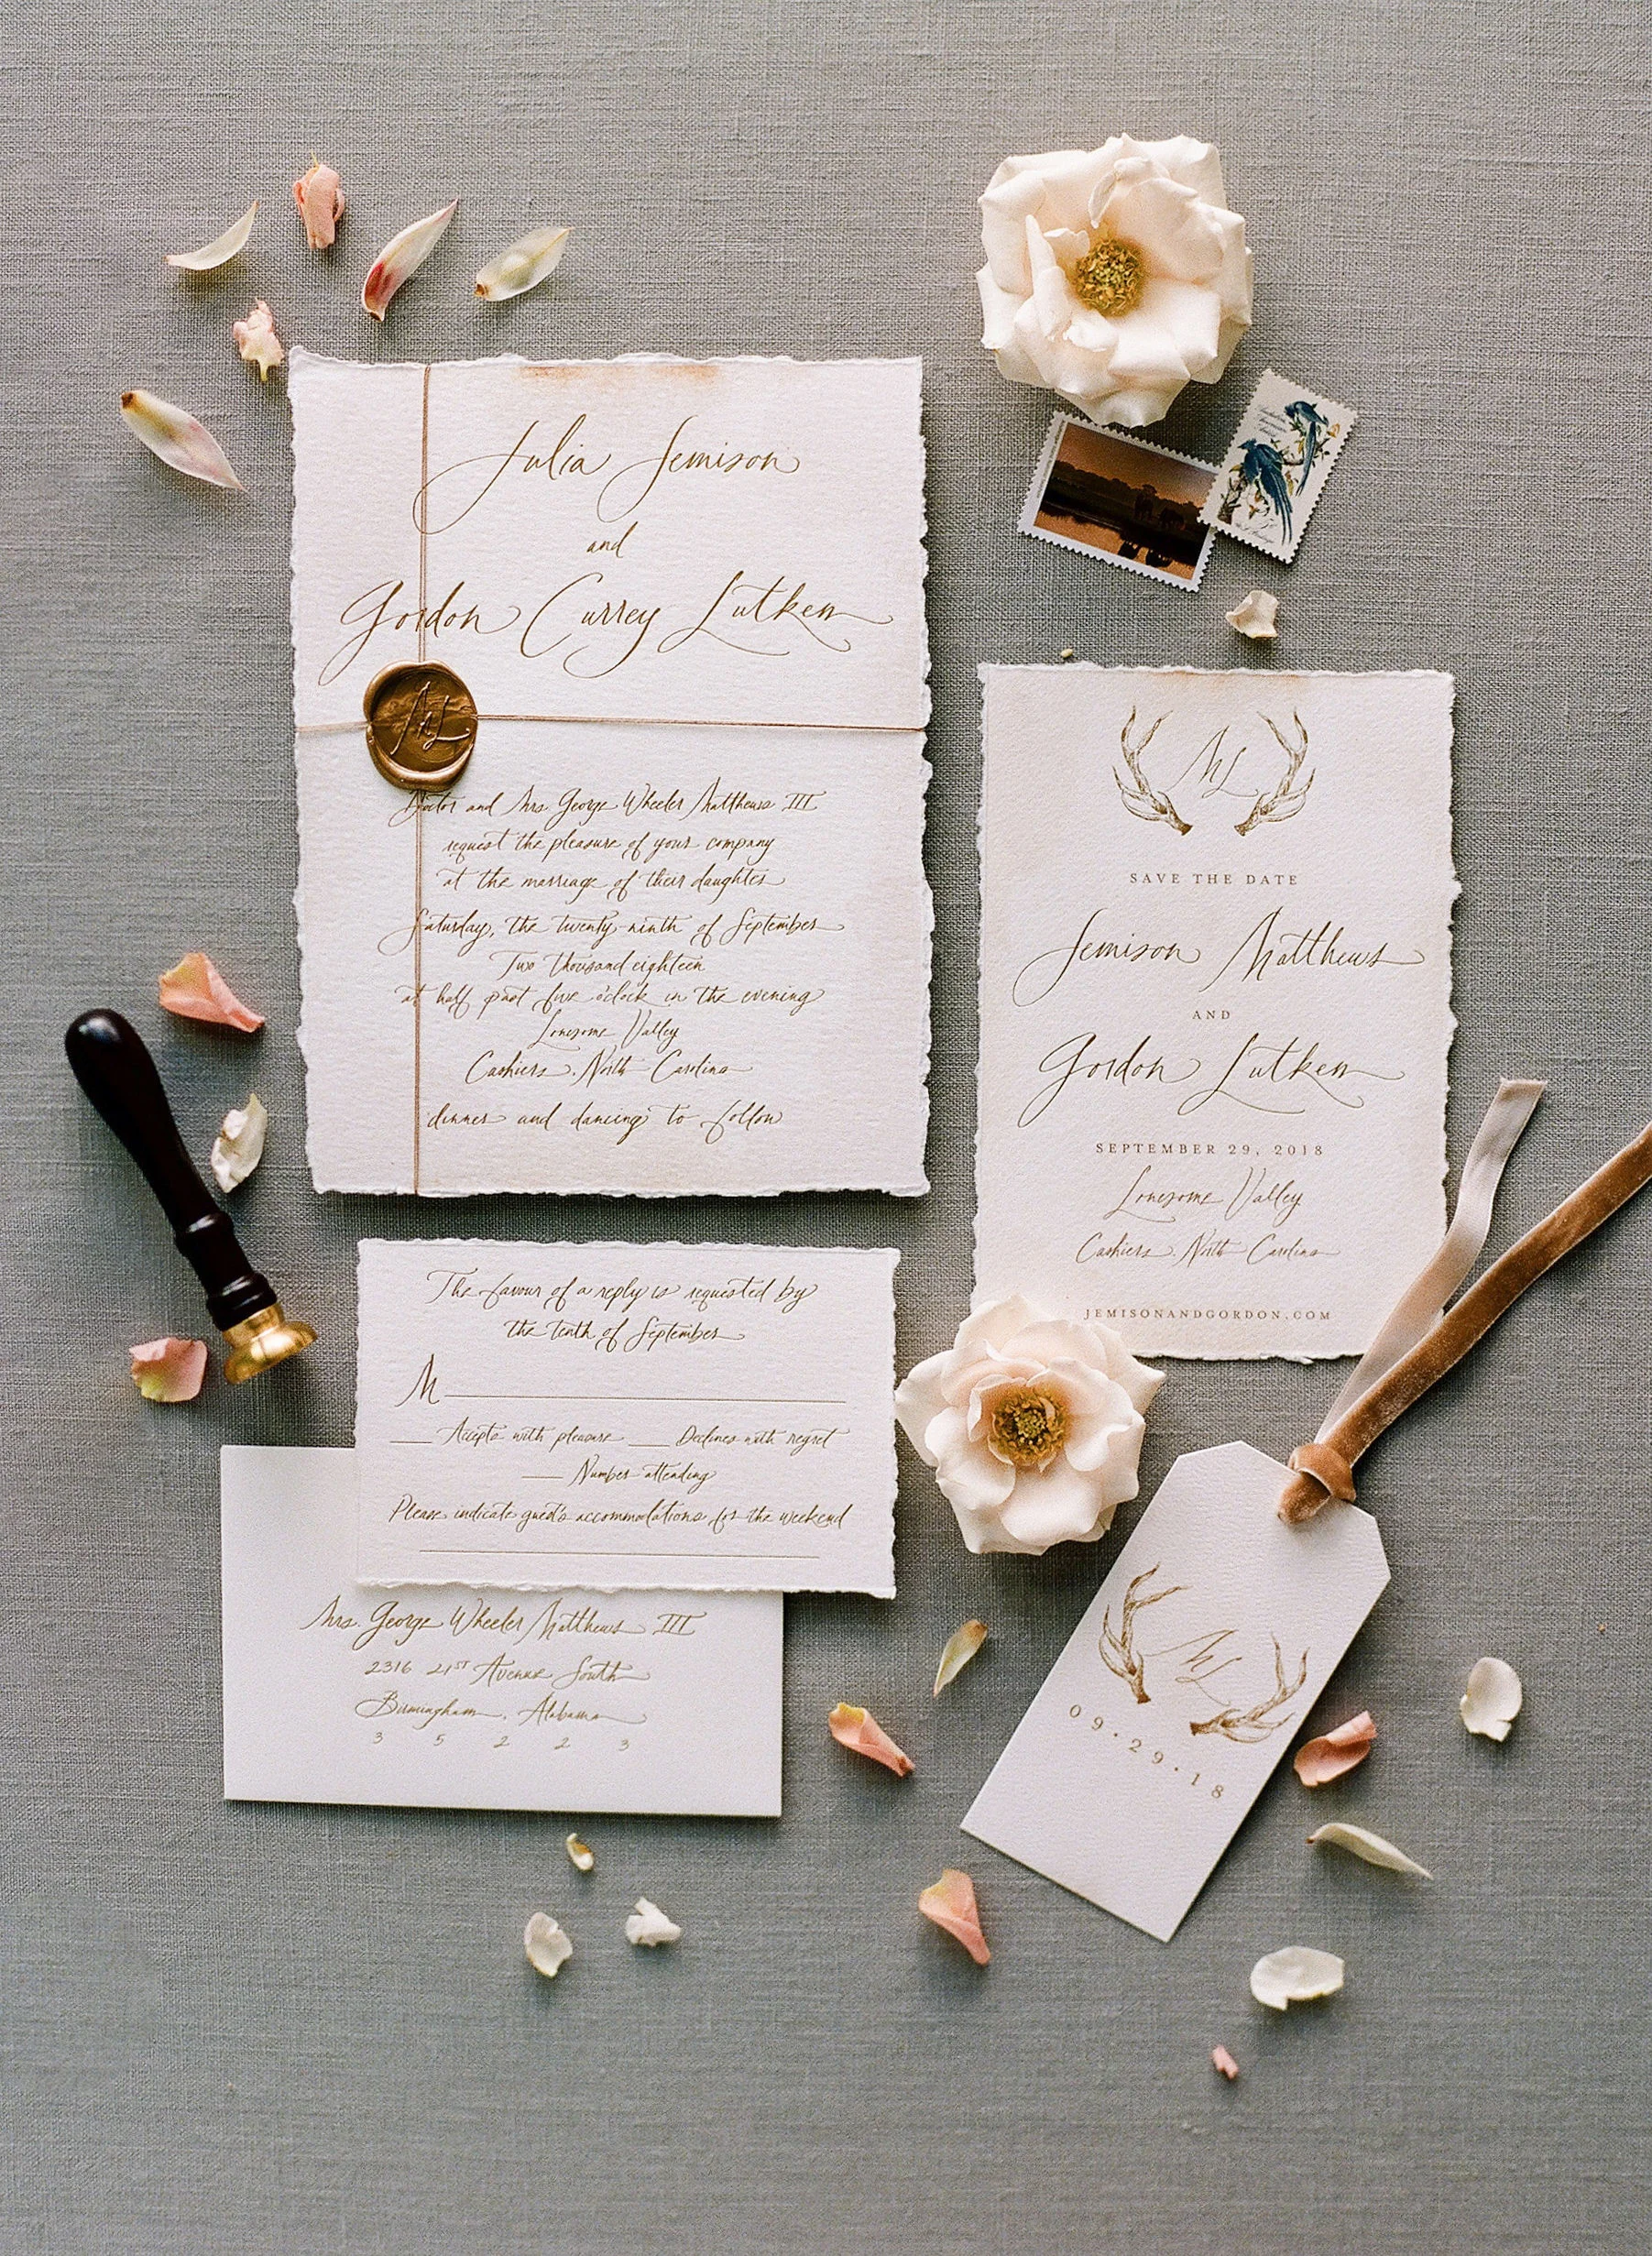 Julia Jemison
and
Gordon Currey Lutken
ML
Doctor and Mrs. George Wheeler Matthews III
request the pleasure of your company
at the marriage of their daughter
Saturday, the twenty-ninth of September
Two thousand eighteen
at half past five o'clock in the evening
Lonesome Valley
Cashiers, North Carolina
dinner and dancing to follow
ML
SAVE THE DATE
Jemison Matthews
AND
Gordon Lutken
SEPTEMBER 29, 2018
Lonesome Valley
Cashiers, North Carolina
JEMISONANDGORDON.COM
The favour of a reply is requested by
the tenth of September
M
Accepts with pleasure Declines with regret
Number attending
Please indicate guest's accommodations for the weekend
Mrs. George Wheeler Matthews III
2316 21ST Avenue South
Birmingham, Alabama
3 5 2 2 3
ML
09.29.18